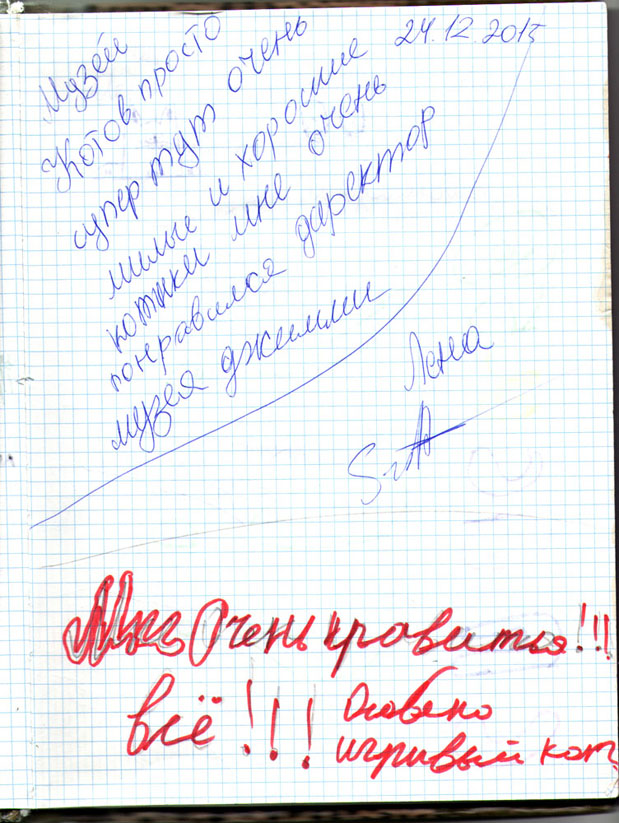 24.12.2015
Музей
Котов просто
супер тут очень
милые и хорошие
котики мне очень
понравился даректор
музея джимми
Лена
Мне Очень нравиться!!!
всё!!! Особено
игривый кот